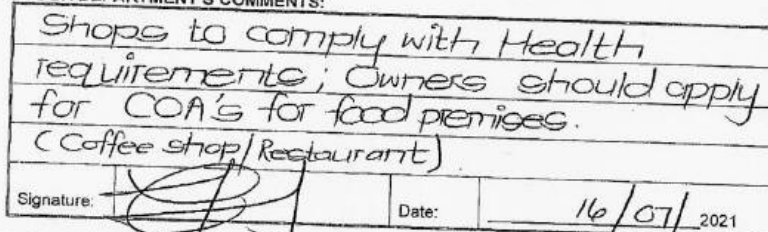 DEPARTMENT'S COMMENTS:
Shops to comply with Health
requirements; Owners should apply
for COA's for food premises.
(Coffee shop/Restaurant)
Signature: Date: 16/07/2021